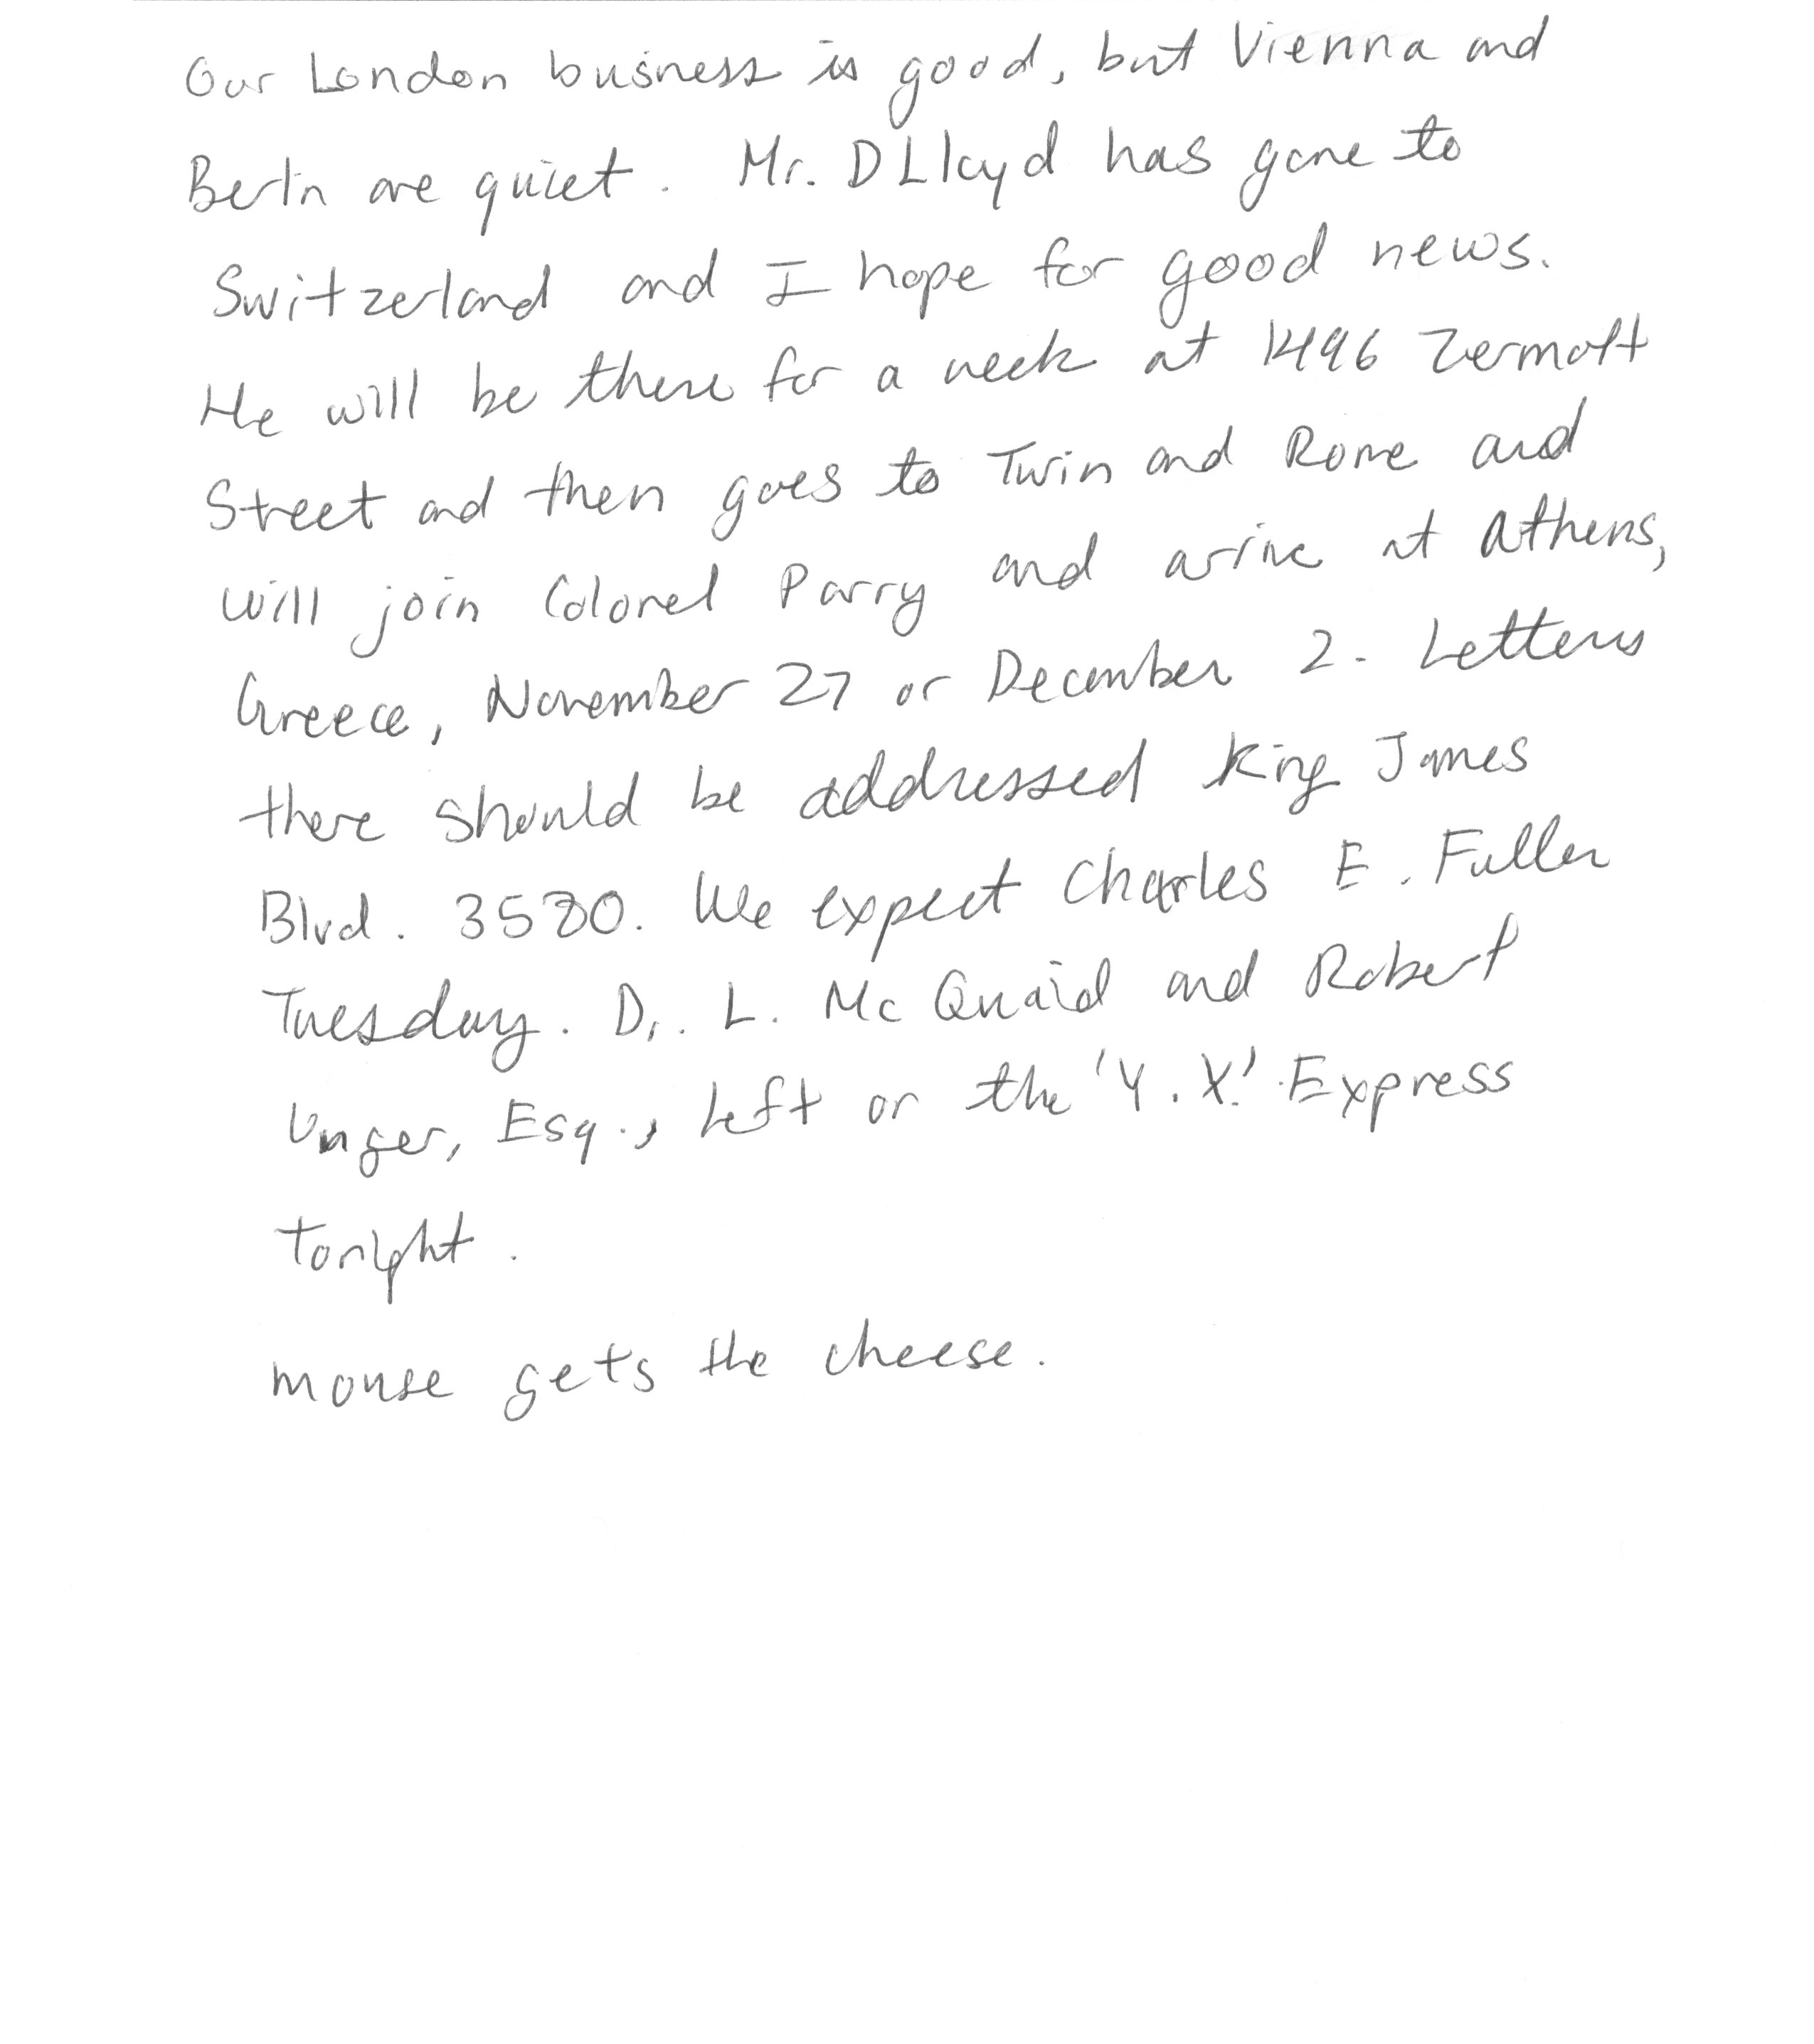 Our London business is good, but Vienna and
Berlin are quiet. Mr. D Lloyd has gone to
Switzerland and I hope for good news.
He will be there for a week at 1496 Zermott
Street and then goes to Turin and Rome and
will join Colonel Parry and arive at Athens,
Greece, November 27 or December 2. Letters
there should be addressed King James
Blvd. 3580. We expect Charles E. Fuller
Tuesday. Dr. L. Mc Quaid and Robert
Unger, Esq., left on the 'Y.X.' Express
tonight.
mouse gets the cheese.